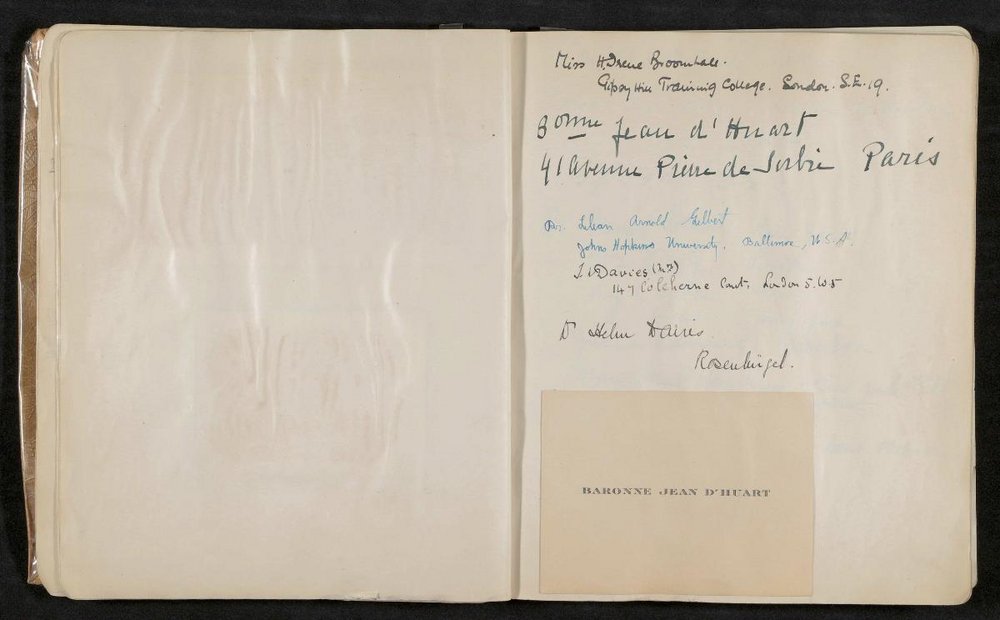 Miss H. Irene Broomhall.
Gipsy Hill Training College. London. S.E. 19.
Bonne Jean d'Huart
41 Avenue Pierre de Serbie Paris
Dr. Lilian Arnold Gilbert
Johns Hopkins University, Baltimore, U.S.A.
Davies
147 Colcherne Court, London S.W.5
Dr Helen Davies
Rosenhügel.
BARONNE JEAN D'HUART